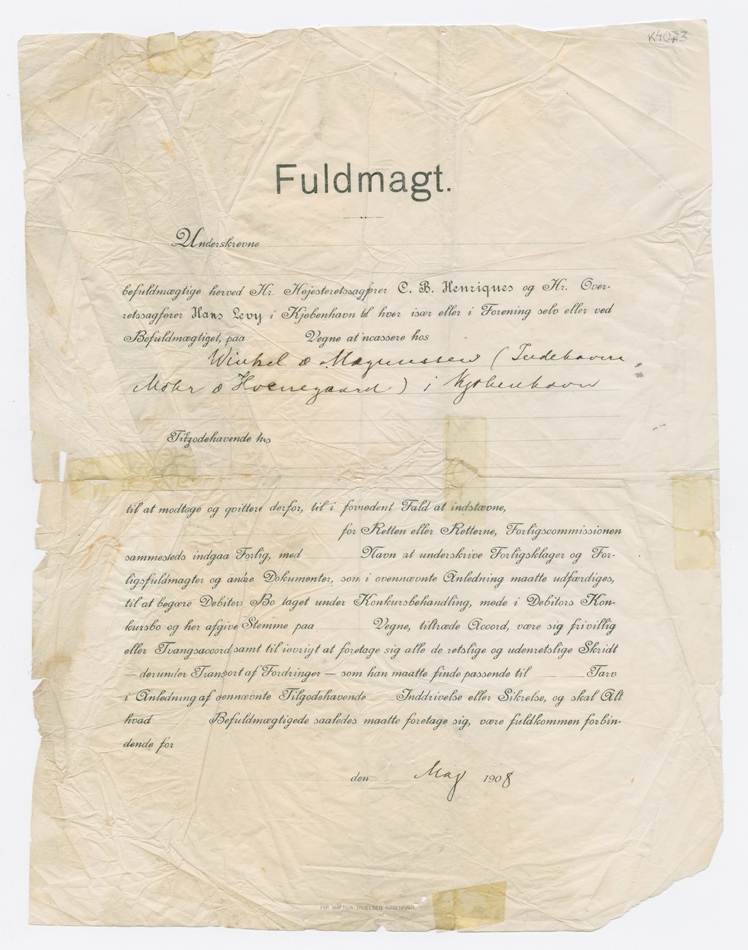 K4073
Fuldmagt.
Underskrevne
befuldmægtige herved Hr. Højesteretssagfører C. B. Henriques og Hr. Over-
retssagfører Hans Levy i Kjøbenhavn til hver især eller i Forening selv eller ved
Befuldmægtiget, paa Vegne at incassere hos
Winkel & Magnussen (Indehavere
Mohr & Hvenegaard) i Kjøbenhavn
Tilgodehavende hos
til at modtage og qvittere derfor, til i fornødent Fald at indstævne,
for Retten eller Retterne, Forligscommissionen
sammesteds indgaa Forlig, med Navn at underskrive Forligsklager og For-
ligsfuldmagter og andre Dokumenter, som i ovennævnte Anledning maatte udfærdiges,
til at begære Debitors Bo taget under Konkursbehandling, møde i Debitors Kon-
kursbo og her afgive Stemme paa Vegne, tiltræde Accord, være sig frivillig
eller Tvangsaccord samt til iøvrigt at foretage sig alle de retslige og udenretslige Skridt
— derunder Transport af Fordringer — som han maatte finde passende til Tarv
i Anledning af ovennævnte Tilgodehavende Inddrivelse eller Sikrelse, og skal Alt
hvad Befuldmægtigede saaledes maatte foretage sig, være fuldkommen forbin-
dende for
den May 1908